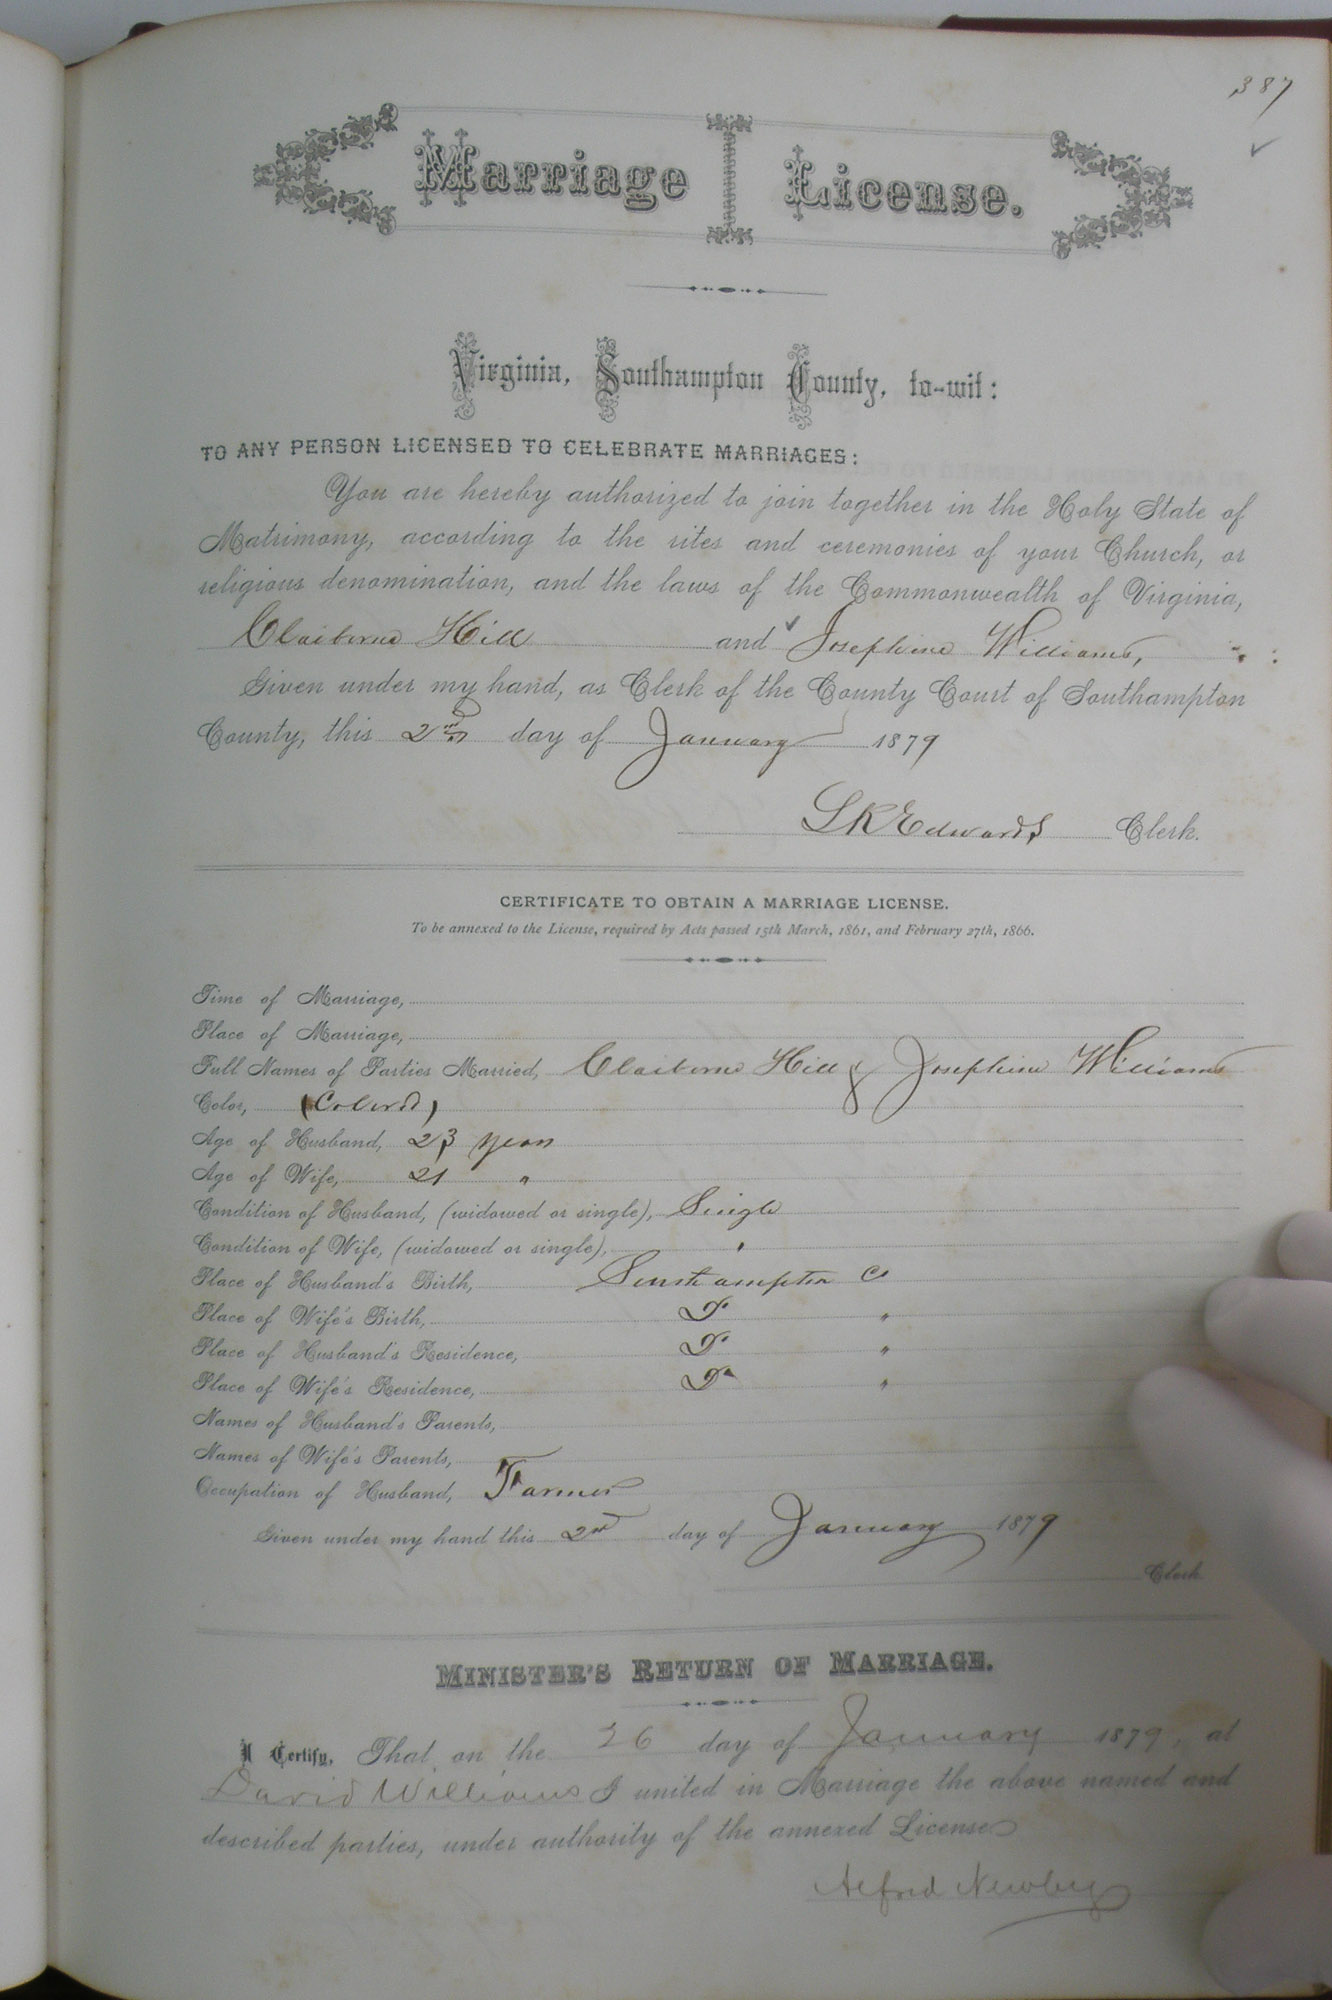 387
Marriage License.
Virginia, Southampton County, to-wit:
TO ANY PERSON LICENSED TO CELEBRATE MARRIAGES:
You are hereby authorized to join together in the Holy State of
Matrimony, according to the rites and ceremonies of your Church, or
religious denomination, and the laws of the Commonwealth of Virginia,
Claiborne Hill and Josephine Williams,
Given under my hand, as Clerk of the County Court of Southampton
County, this 2nd day of January 1879
L R Edwards Clerk.
CERTIFICATE TO OBTAIN A MARRIAGE LICENSE.
To be annexed to the License, required by Acts passed 15th March, 1861, and February 27th, 1866.
Time of Marriage,
Place of Marriage,
Full Names of Parties Married, Claiborne Hill & Josephine Williams
Color, (Colored)
Age of Husband, 23 years
Age of Wife, 21 "
Condition of Husband, (widowed or single), Single
Condition of Wife, (widowed or single), "
Place of Husband's Birth, Southampton Co
Place of Wife's Birth, Do "
Place of Husband's Residence, Do "
Place of Wife's Residence, Do "
Names of Husband's Parents,
Names of Wife's Parents,
Occupation of Husband, Farmer
Given under my hand this 2nd day of January 1879
Clerk
MINISTER'S RETURN OF MARRIAGE.
I Certify, That on the 26 day of January 1879, at
David Williams I united in Marriage the above named and
described parties, under authority of the annexed License
Alfred Newby